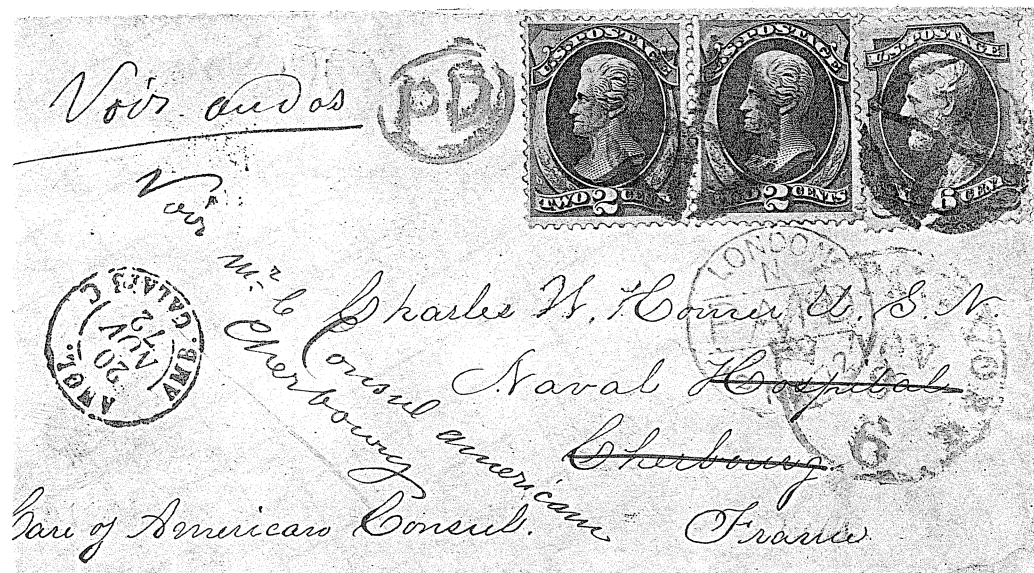 Voir au dos
PD
U.S. POSTAGE
TWO 2 CENTS
U.S. POSTAGE
2 CENTS
U.S. POSTAGE
6 CENTS
Voir
Mr. le Consul américain
Cherbourg
ANGL. AMB. CALAIS C
20
NOV
72
LONDON
Charles W. Homer U. S. N.
Naval Hospital
Cherbourg
6
Care of American Consul.
France